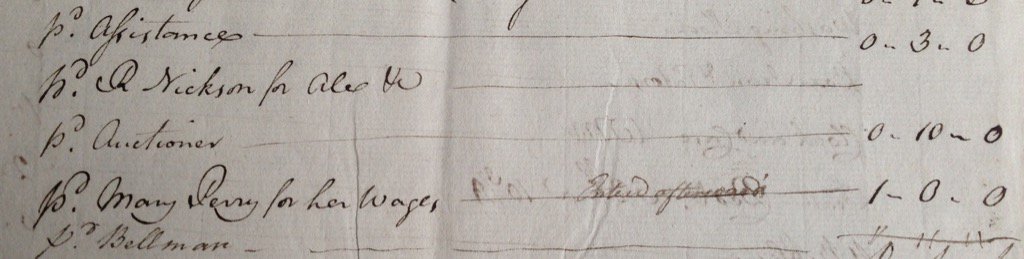 pd. Assistance 0 - 3 - 0
pd. R Nickson for ale &c
pd. Auctioner 0 - 10 - 0
pd. Mary Perry for her Wages Enterd afterwards 1 - 0 - 0
pd Bellman - " " "